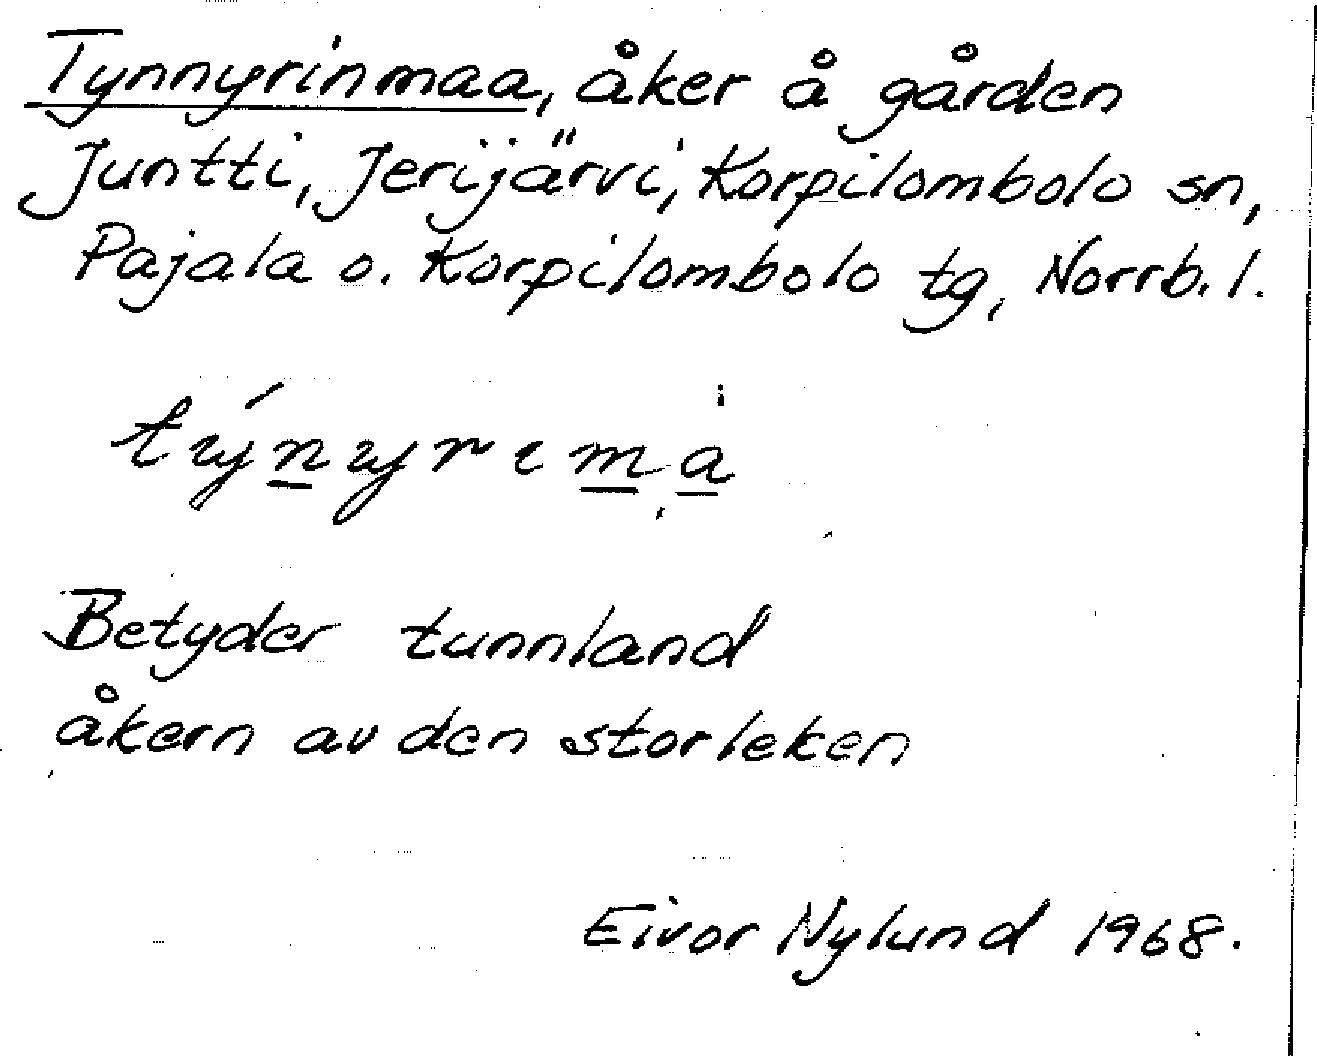 Tynnyrinmaa, åker å gården
Juntti, Jerijärvi, Korpilombolo sn,
Pajala o. Korpilombolo tg, Norrb. l.
týnyrima
Betyder tunnland
åkern av den storleken
Eivor Nylund 1968.